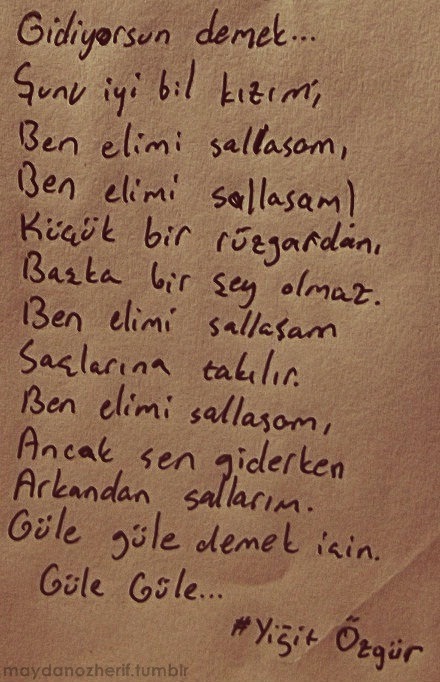 Gidiyorsun demek...
Şunu iyi bil kızım,
Ben elimi sallasam,
Ben elimi sallasam
Küçük bir rüzgardan,
Başka bir şey olmaz.
Ben elimi sallasam
Saçlarına takılır.
Ben elimi sallasam,
Ancak sen giderken
Arkandan sallarım.
Güle güle demek için.
Güle Güle...
#Yiğit Özgür
maydanozherif.tumblr